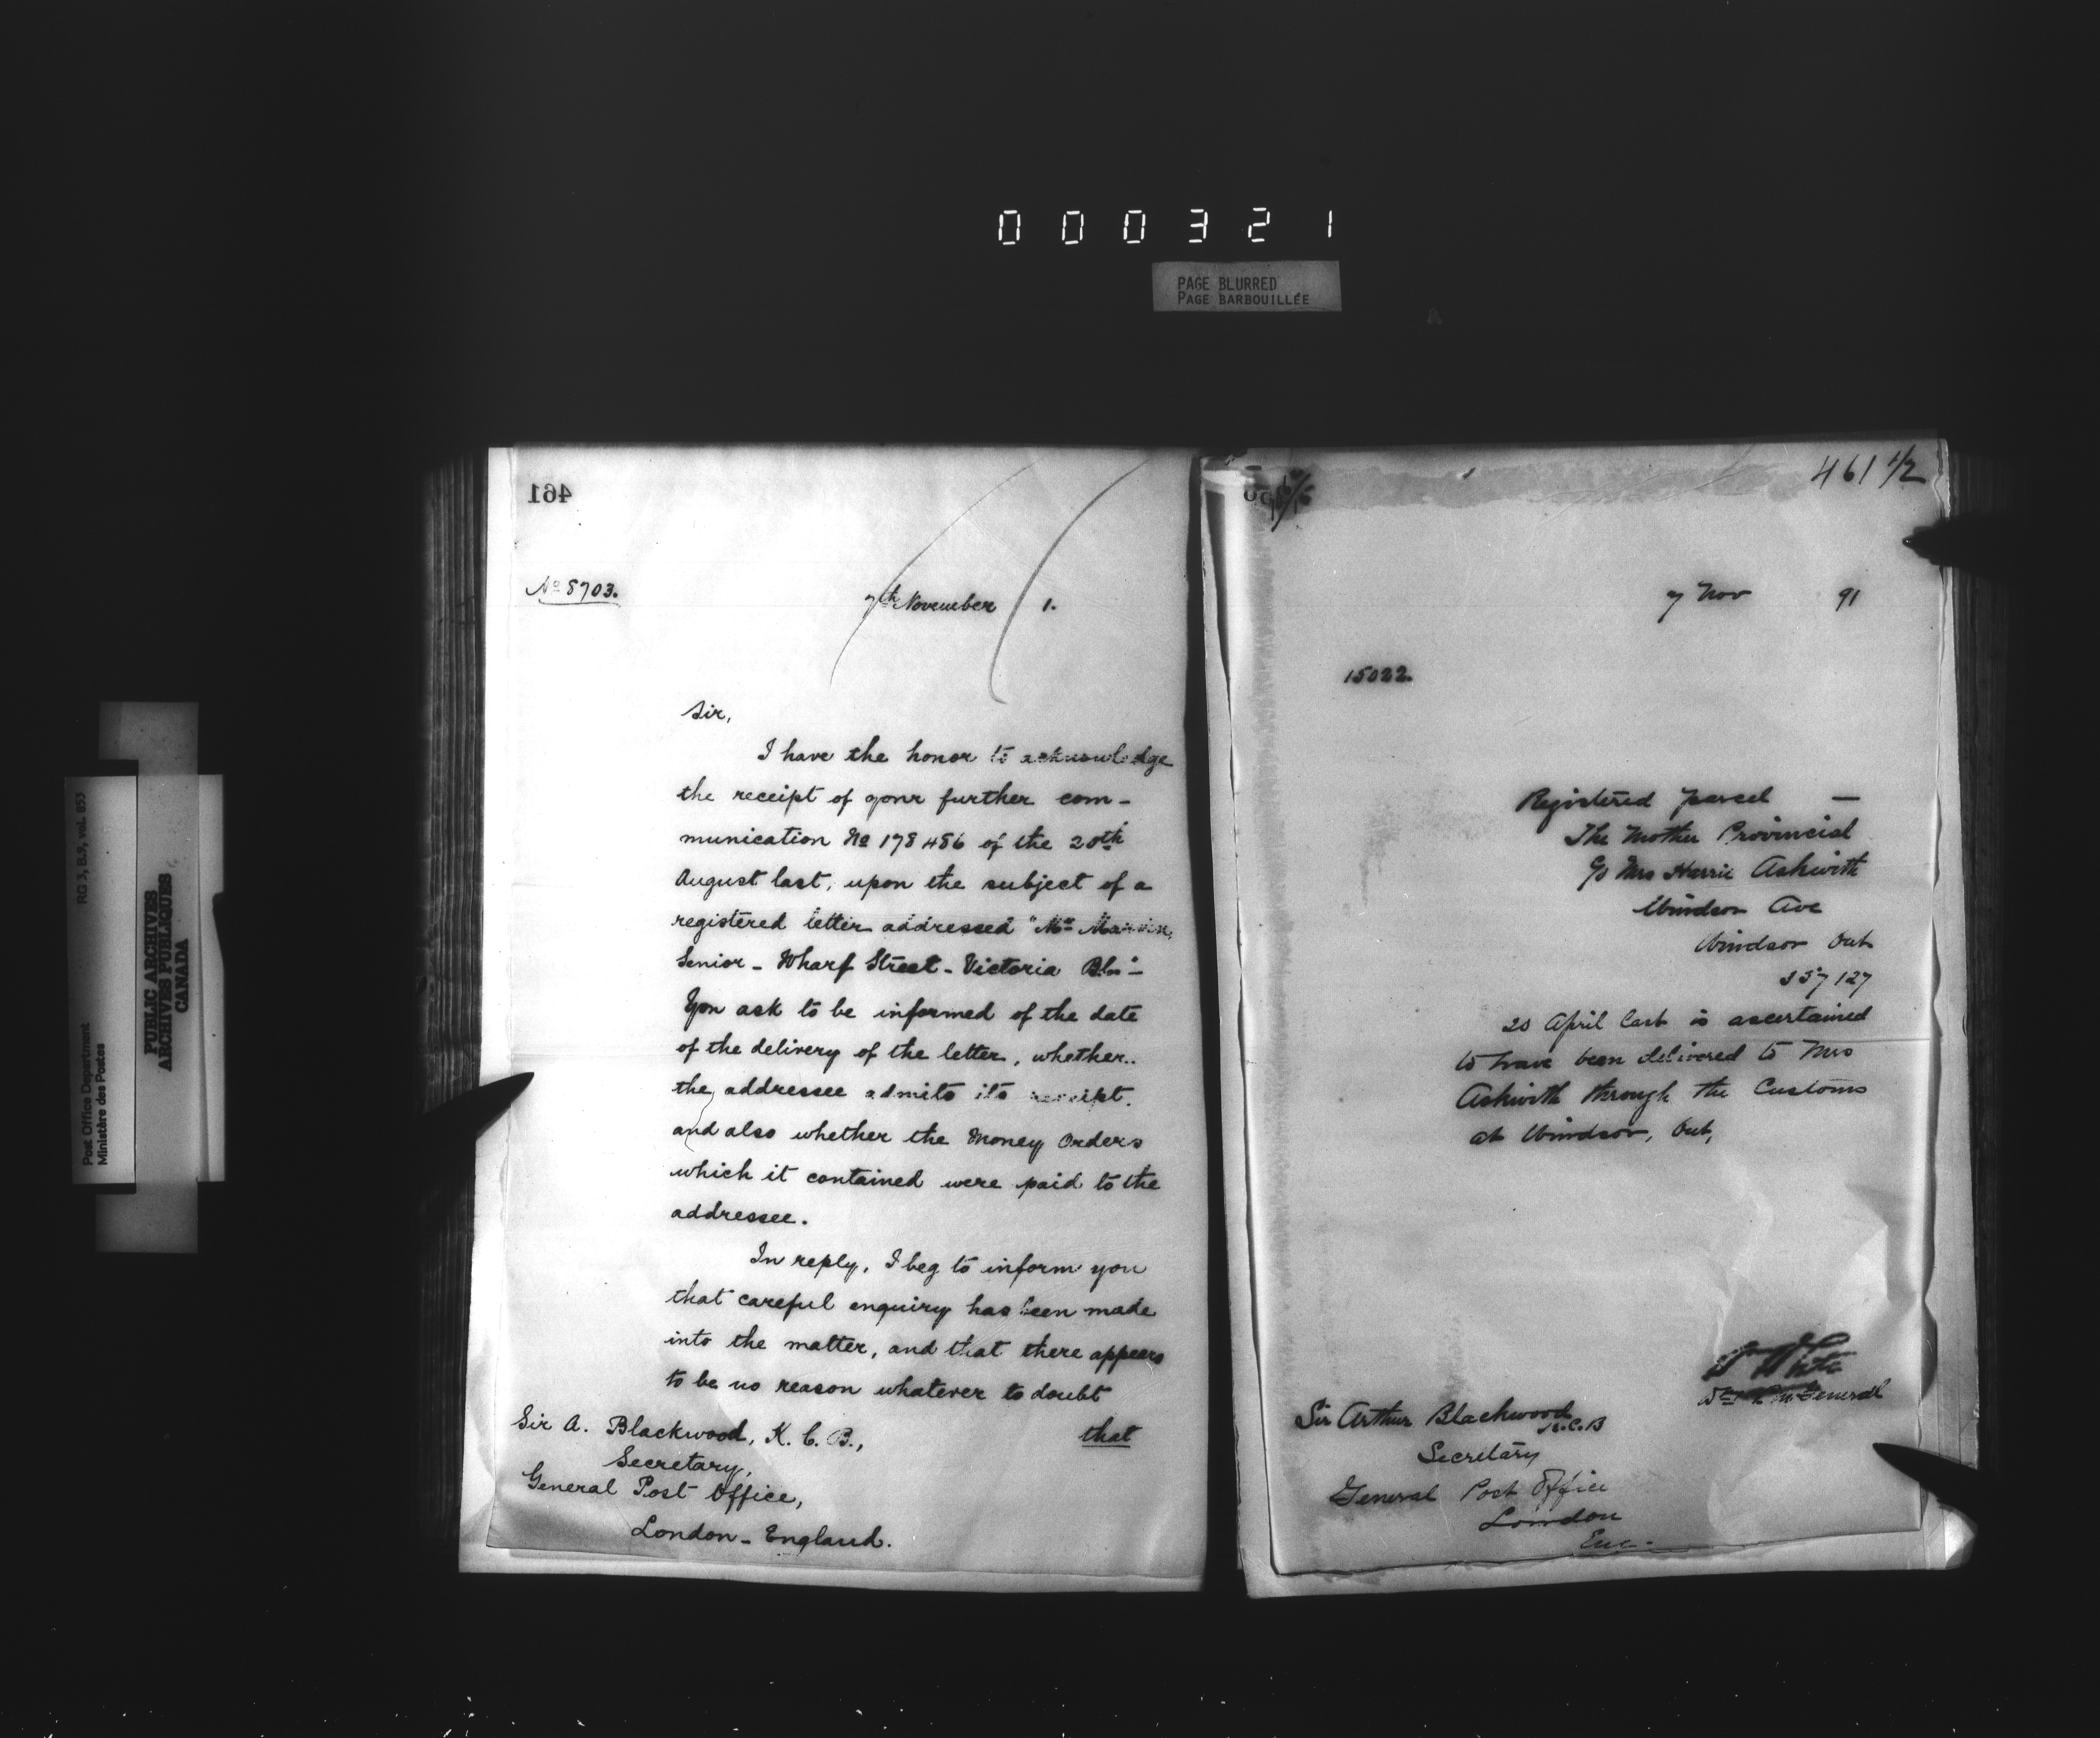 000321
PAGE BLURRED
PAGE BARBOUILLÉE
RG 3, B.9, vol. 853
Post Office Department
Ministère des Postes
PUBLIC ARCHIVES
ARCHIVES PUBLIQUES
CANADA
461
No 8703.
7th November 1.
Sir,
I have the honor to acknowledge
the receipt of your further com-
munication No 178486 of the 20th
August last, upon the subject of a
registered letter addressed "Mr Marvin,
Senior - Wharf Street - Victoria
You ask to be informed of the date
of the delivery of the letter, whether
the addressee admits its receipt,
and also whether the Money Orders
which it contained were paid to the
addressee.
In reply, I beg to inform you
that careful enquiry has been made
into the matter, and that there appears
to be no reason whatever to doubt
that
Sir A. Blackwood, K.C.B.,
Secretary,
General Post Office,
London - England.
461 1/2
7 Nov 91
15022.
Registered parcel —
The Mother Provincial
c/o Mrs Harrie Askwith
Windsor Ave
Windsor Ont
20 April last is ascertained
to have been delivered to Mrs
Askwith through the Customs
at Windsor, Ont,
General
Sir Arthur Blackwood
K.C.B
Secretary
General Post Office
London